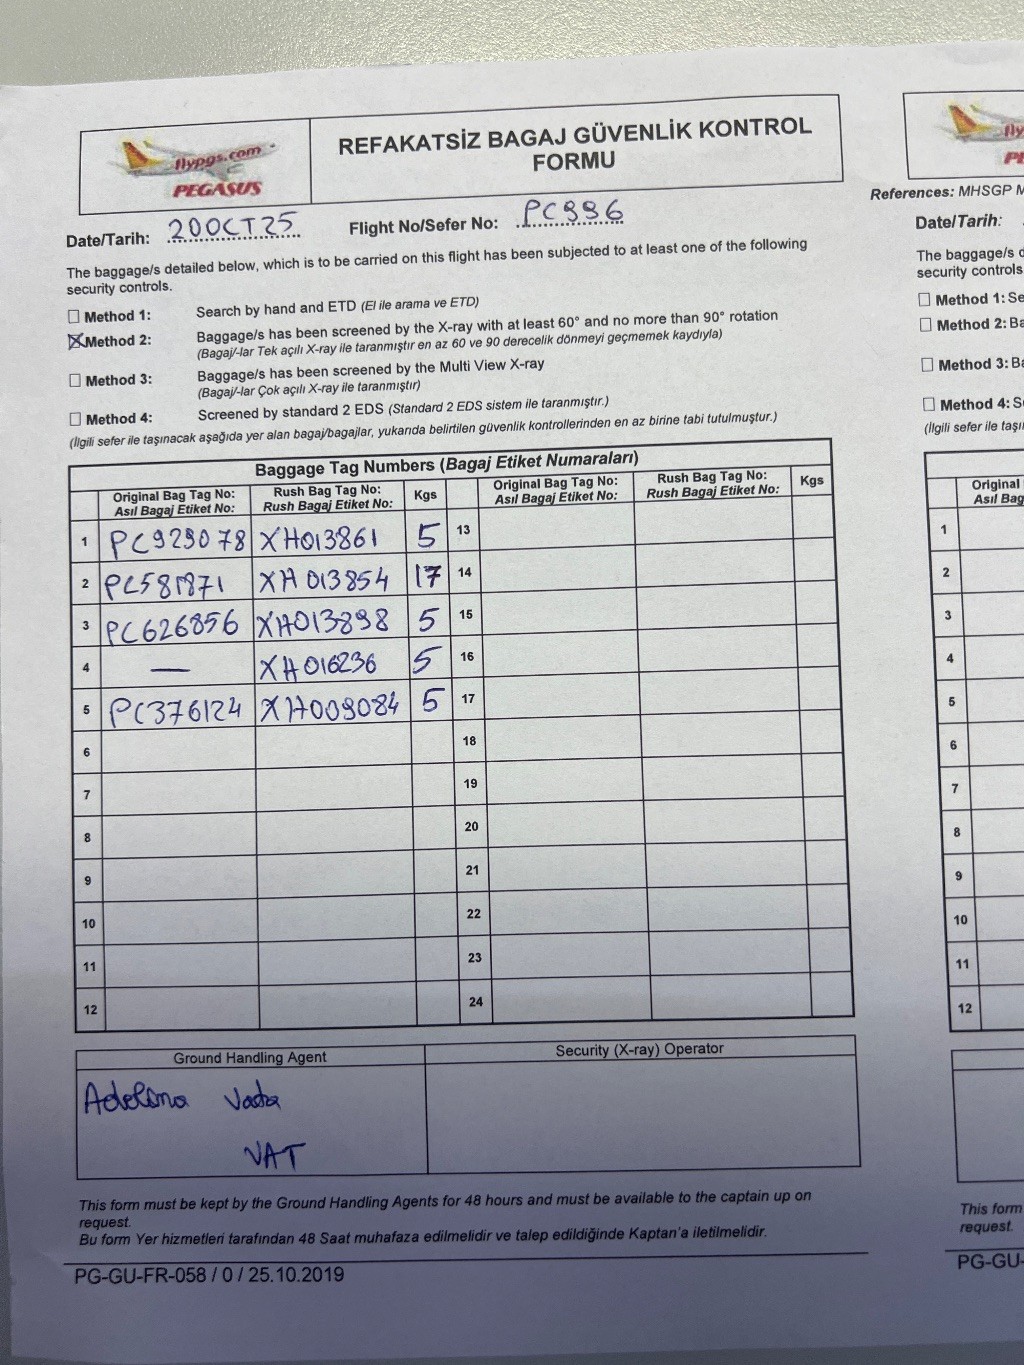 flypgs.com
PEGASUS
REFAKATSİZ BAGAJ GÜVENLİK KONTROL
FORMU
Date/Tarih: 20OCT25 Flight No/Sefer No: PC996
The baggage/s detailed below, which is to be carried on this flight has been subjected to at least one of the following
security controls.
Method 1: Search by hand and ETD (El ile arama ve ETD)
Method 2: Baggage/s has been screened by the X-ray with at least 60° and no more than 90° rotation
(Bagaj/-lar Tek açılı X-ray ile taranmıştır en az 60 ve 90 derecelik dönmeyi geçmemek kaydıyla)
Method 3: Baggage/s has been screened by the Multi View X-ray
(Bagaj/-lar Çok açılı X-ray ile taranmıştır)
Method 4: Screened by standard 2 EDS (Standard 2 EDS sistem ile taranmıştır.)
(İlgili sefer ile taşınacak aşağıda yer alan bagaj/bagajlar, yukarıda belirtilen güvenlik kontrollerinden en az birine tabi tutulmuştur.)
Baggage Tag Numbers (Bagaj Etiket Numaraları)
Original Bag Tag No: Rush Bag Tag No: Kgs Original Bag Tag No: Rush Bag Tag No: Kgs
Asıl Bagaj Etiket No: Rush Bagaj Etiket No: Asıl Bagaj Etiket No: Rush Bagaj Etiket No:
1 PC929078 XH013861 5 13
2 XH013854 17 14
3 PC626856 XH013898 5 15
4 — XH016236 5 16
5 PC376124 XH009084 5 17
6 18
7 19
8 20
9 21
10 22
11 23
12 24
Ground Handling Agent Security (X-ray) Operator
Adelina
VAT
This form must be kept by the Ground Handling Agents for 48 hours and must be available to the captain up on
request.
Bu form Yer hizmetleri tarafından 48 Saat muhafaza edilmelidir ve talep edildiğinde Kaptan'a iletilmelidir.
PG-GU-FR-058 / 0 / 25.10.2019
fly
PE
References: MHSGP M
Date/Tarih:
The baggage/s d
security controls
Method 1: Se
Method 2: Ba
Method 3: Ba
Method 4: S
(İlgili sefer ile taşı
Original
Asıl Bag
1
2
3
4
5
6
7
8
9
10
11
12
This form
request.
PG-GU-